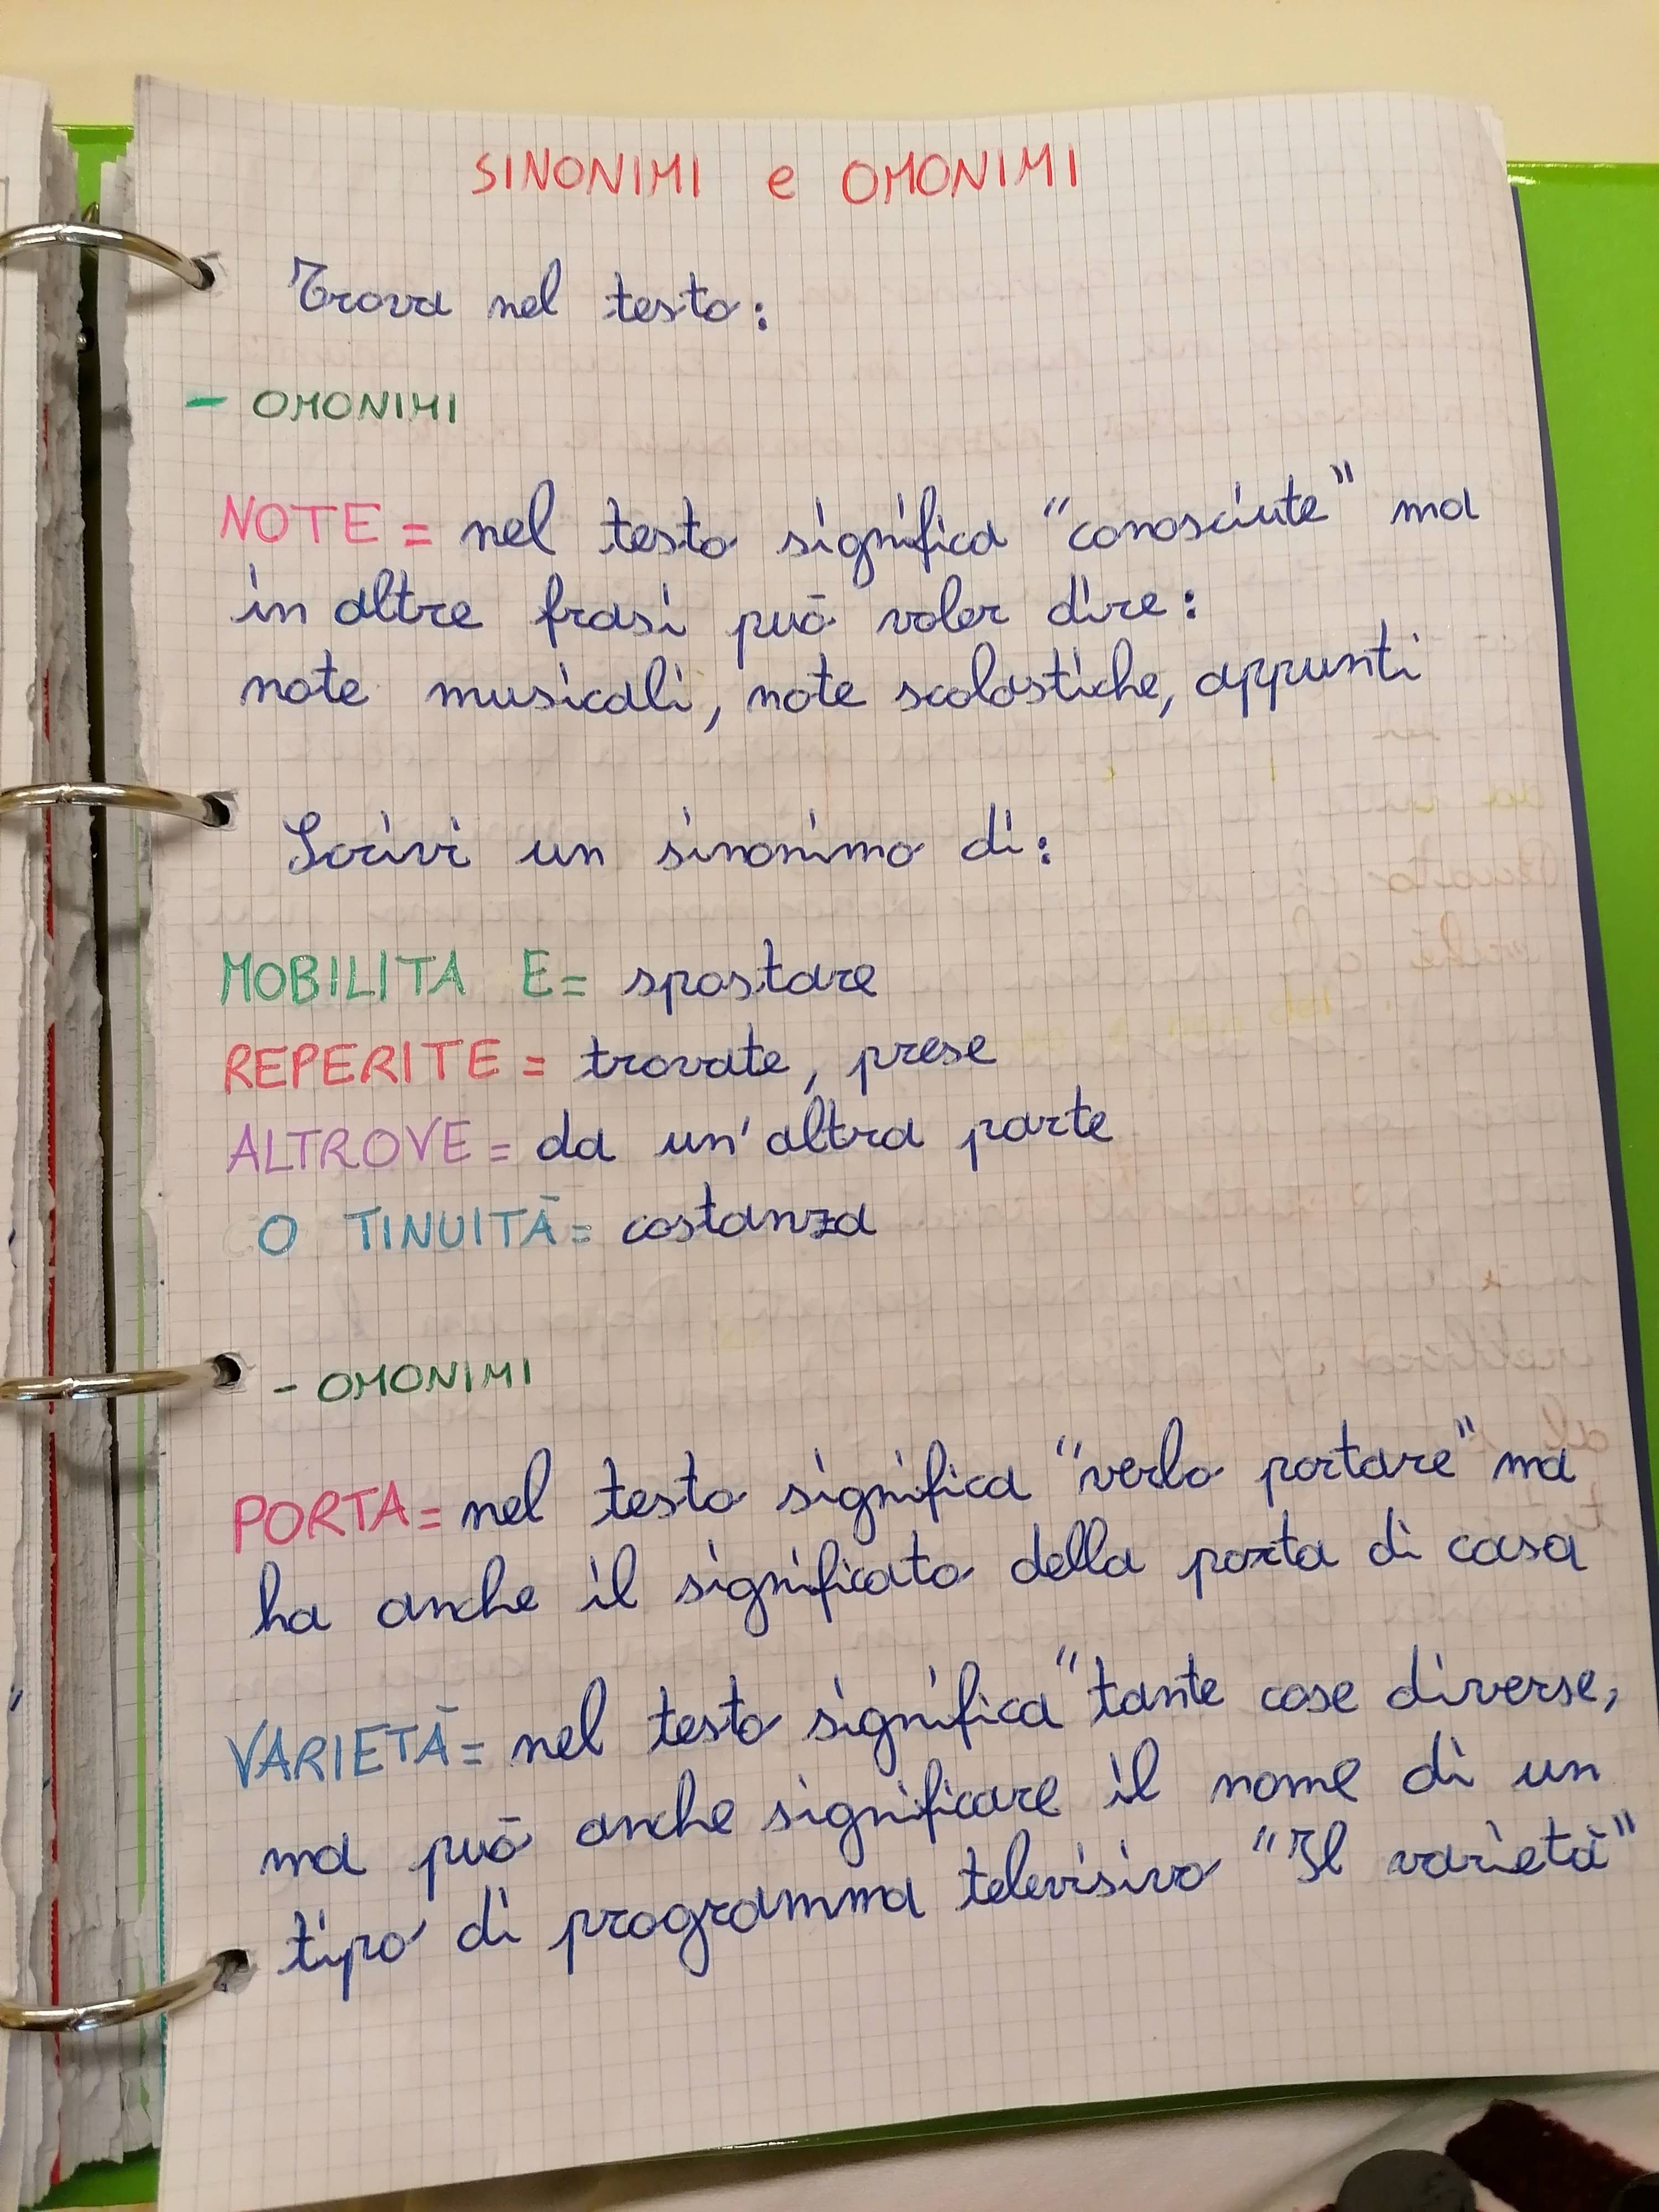 SINONIMI e OMONIMI
Trova nel testo:
- OMONIMI
NOTE = nel testo significa "conosciute" ma
in altre frasi può voler dire:
note musicali, note scolastiche, appunti
Scrivi un sinonimo di:
MOBILITA E = spostare
REPERITE = trovate, prese
ALTROVE = da un'altra parte
O TINUITÀ = costanza
- OMONIMI
PORTA = nel testo significa "verbo portare" ma
ha anche il significato della porta di casa
VARIETÀ = nel testo significa "tante cose diverse,
ma può anche significare il nome di un
tipo di programma televisivo "Il varietà"